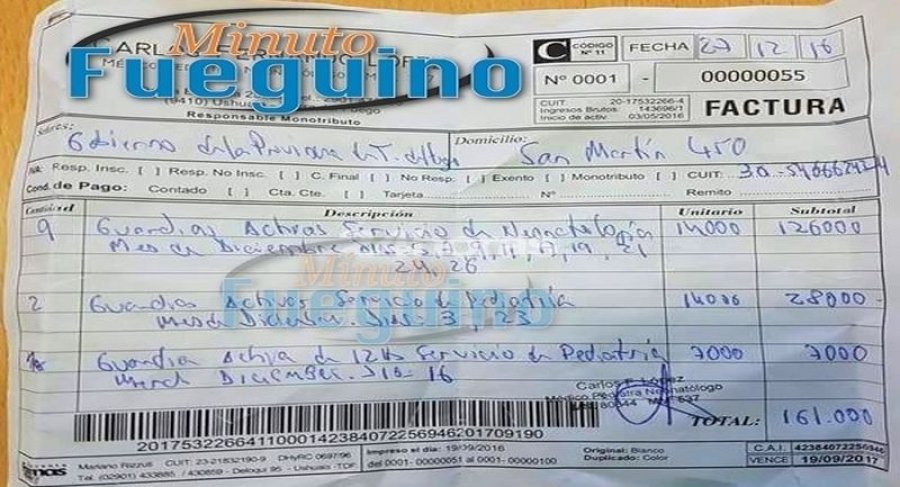 Minuto
Fueguino
CARLOS FERNANDO LOPEZ
(9410) Ushuaia
Responsable Monotributo
C CÓDIGO Nº 11
FECHA 27 12 16
Nº 0001 - 00000055
CUIT: 20-17532266-4
Ingresos Brutos: 143696/1
Inicio de activ. 03/05/2016
FACTURA
Señores: Gobierno de la Provincia de T. del fuego Domicilio: San Martín 450
IVA: Resp. Insc. [ ] Resp. No Insc. [ ] C. Final [ ] No Resp. [ ] Exento [ ] Monotributo [ ] CUIT: 30-54666243-4
Cond. de Pago: Contado [ ] Cta. Cte. [ ] Tarjeta Nº Remito
Cantidad Descripción Unitario Subtotal
9 Guardias Activas Servicio de Neonatología 14000 126000
Mes de Diciembre Dias 5, 21
24, 26
Minuto
Fueguino
2 Guardias Activas Servicio de Pediatría 14000 28000
Mes de Diciembre. Dias 3, 23
Guardia Activa de 12 hs Servicio de Pediatría 7000 7000
Mes de Diciembre. Dia 16
Carlos F. López
Médico Pediatra Neonatólogo
TOTAL: 161.000
2017532266411000142384072256946201709190
Mariano Rizzus CUIT: 23-21832190-9 DHyRC 0697/96
Tel. (02901) 433885 / 430859 - Deloqui 95 - Ushuaia - TDF
Impreso el día: 19/09/2016
del 0001- 00000051 al 0001- 00000100
Original: Blanco
Duplicado: Color
C.A.I. 42384072256946
VENCE 19/09/2017